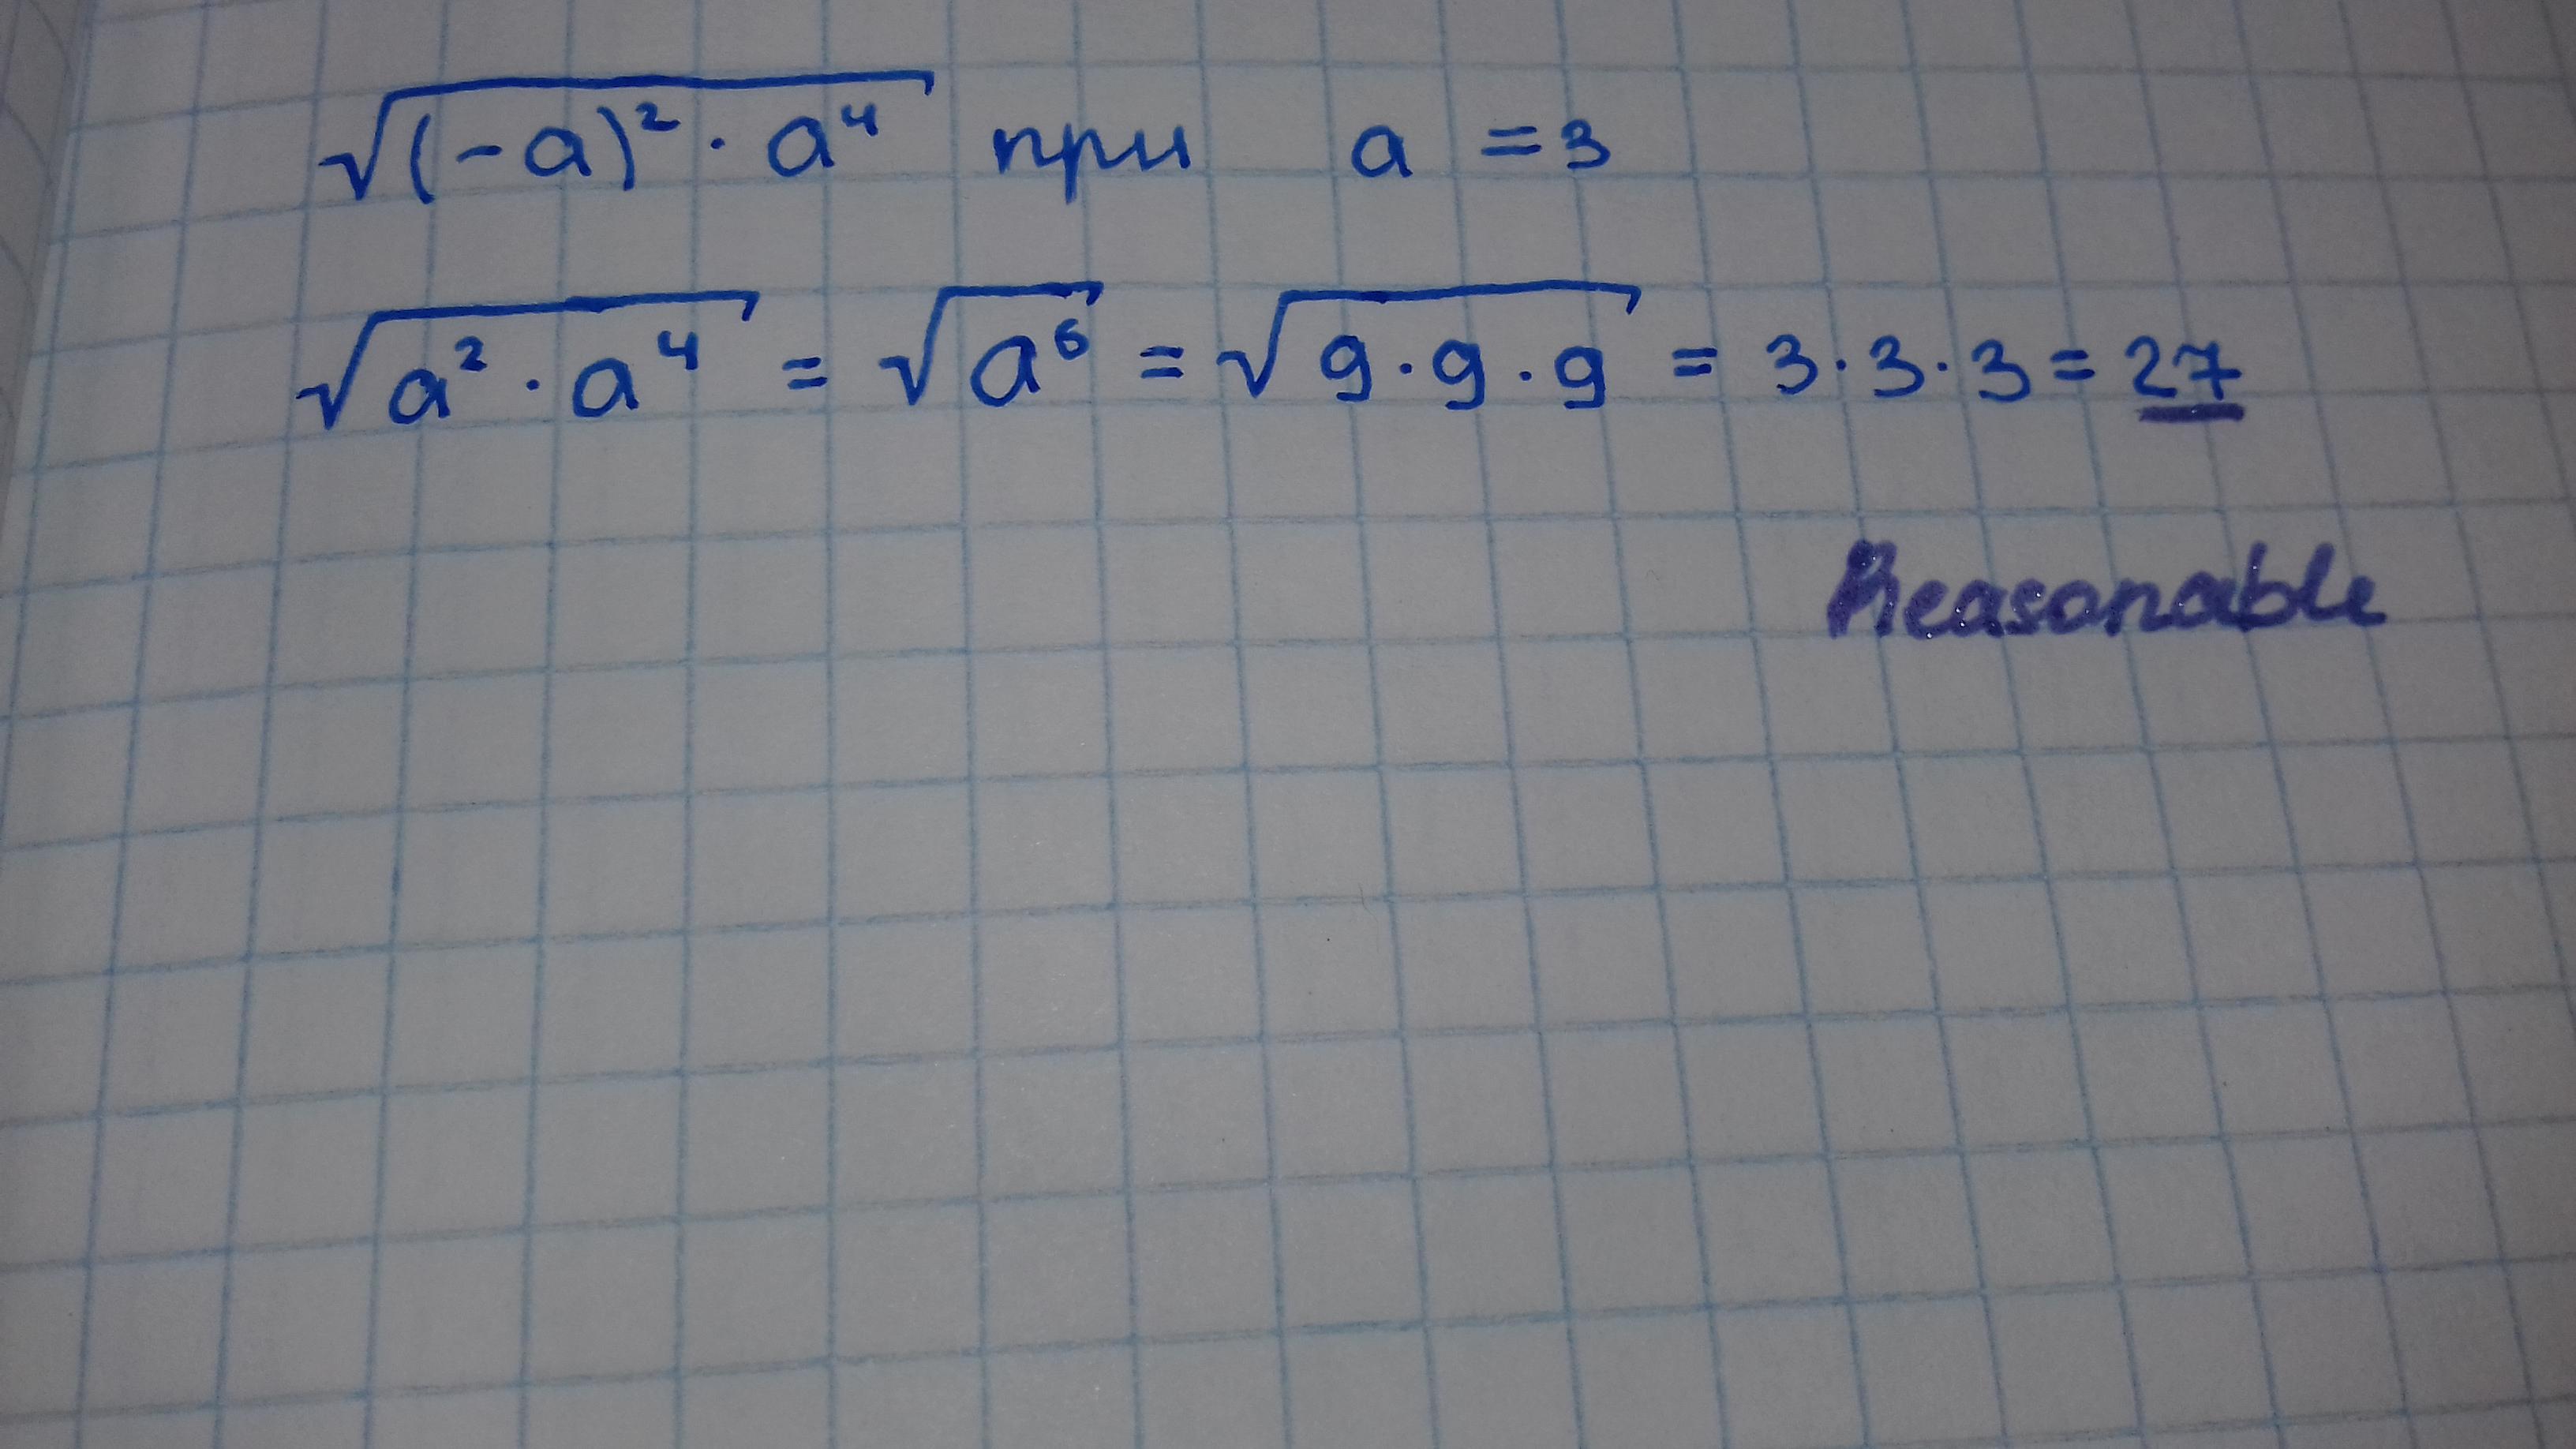 √(-a)² · a⁴ при a = 3
√a² · a⁴ = √a⁶ = √9 · 9 · 9 = 3 · 3 · 3 = 27
Reasonable